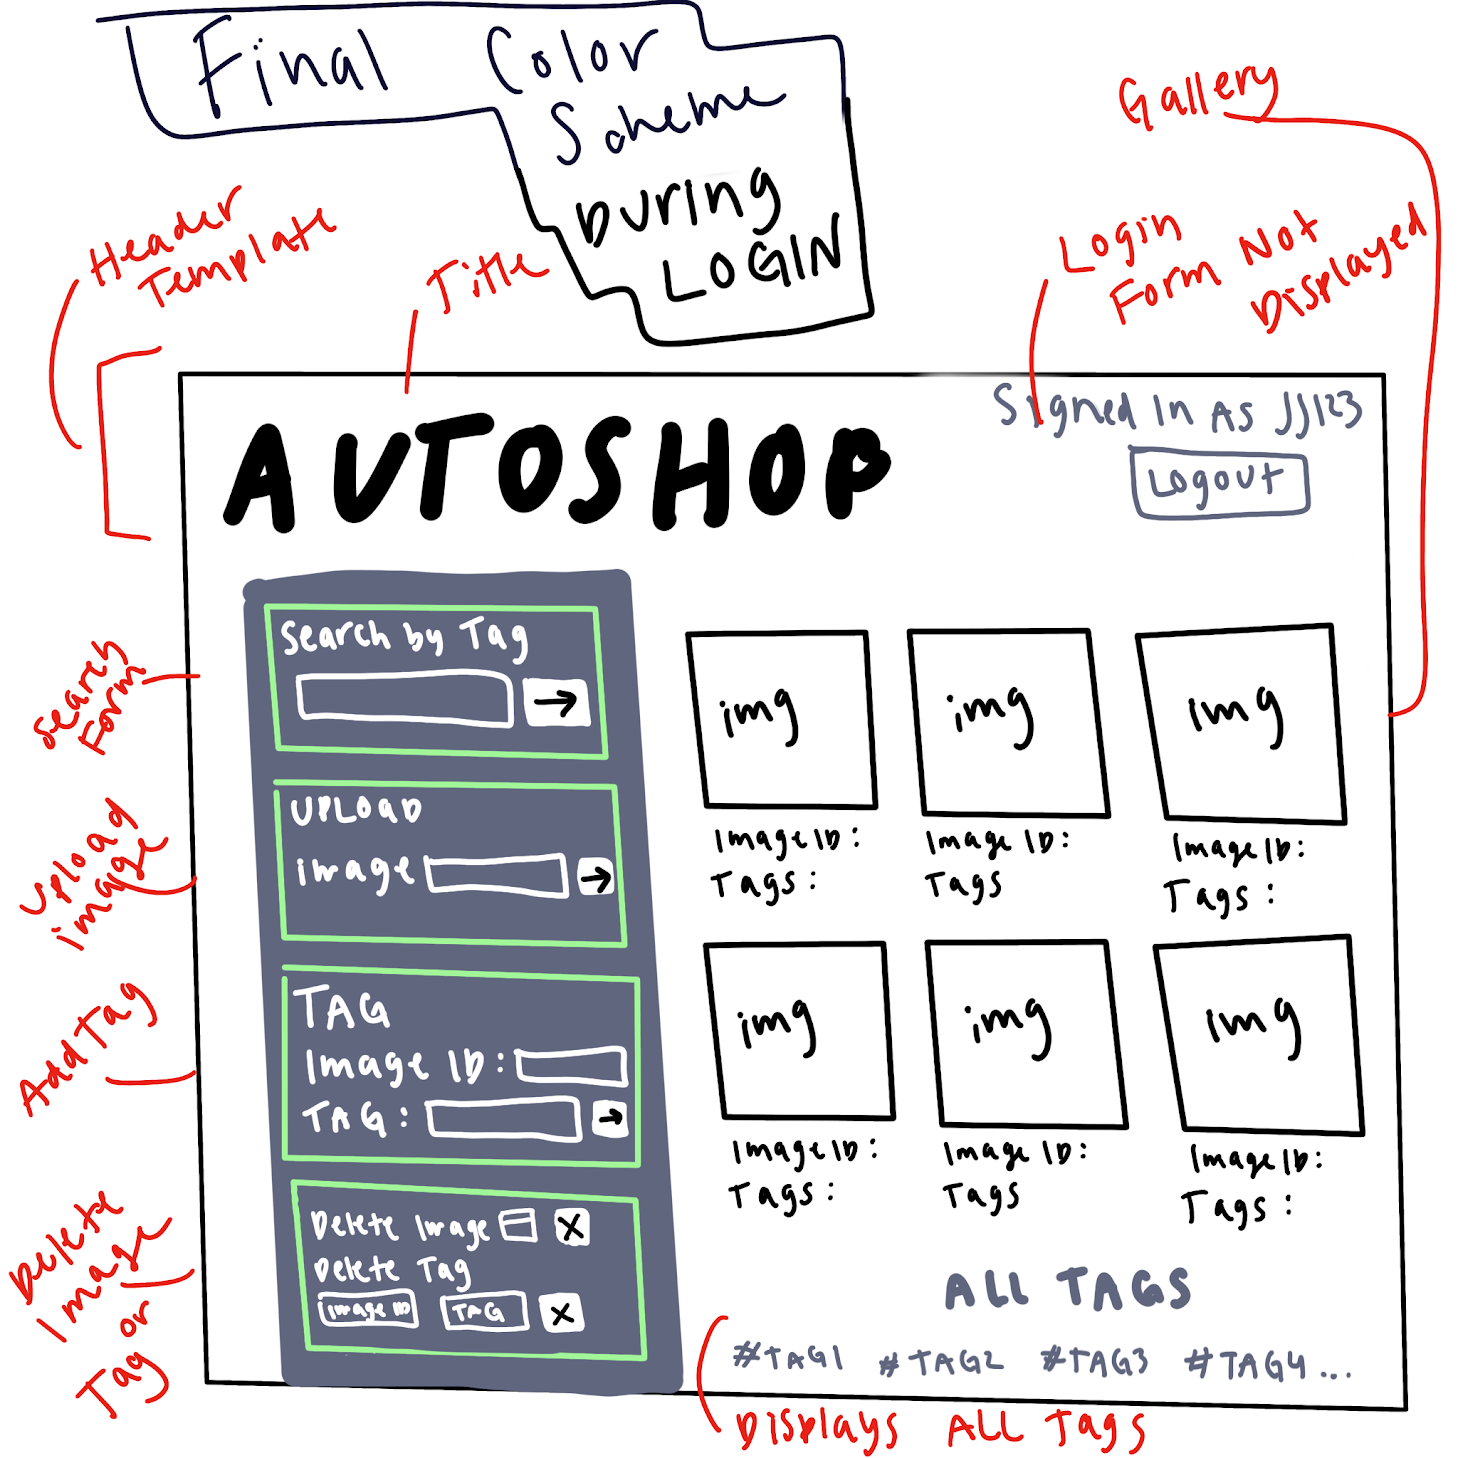 Final Color
Scheme
DURING
LOGIN
Gallery
Header
Template
Title
Login
Form Not
Displayed
AUTOSHOP
Signed In As JJ123
Logout
Search
Form
Search by Tag
→
Upload
image
UPLOAD
image →
Add Tag
TAG
Image ID:
TAG: →
Delete
Image
or
Tag
Delete Image X
Delete Tag
Image ID TAG X
img img img
Image ID: Image ID: Image ID:
Tags: Tags Tags:
img img img
Image ID: Image ID: Image ID:
Tags: Tags Tags:
ALL TAGS
#TAG1 #TAG2 #TAG3 #TAG4...
Displays All Tags